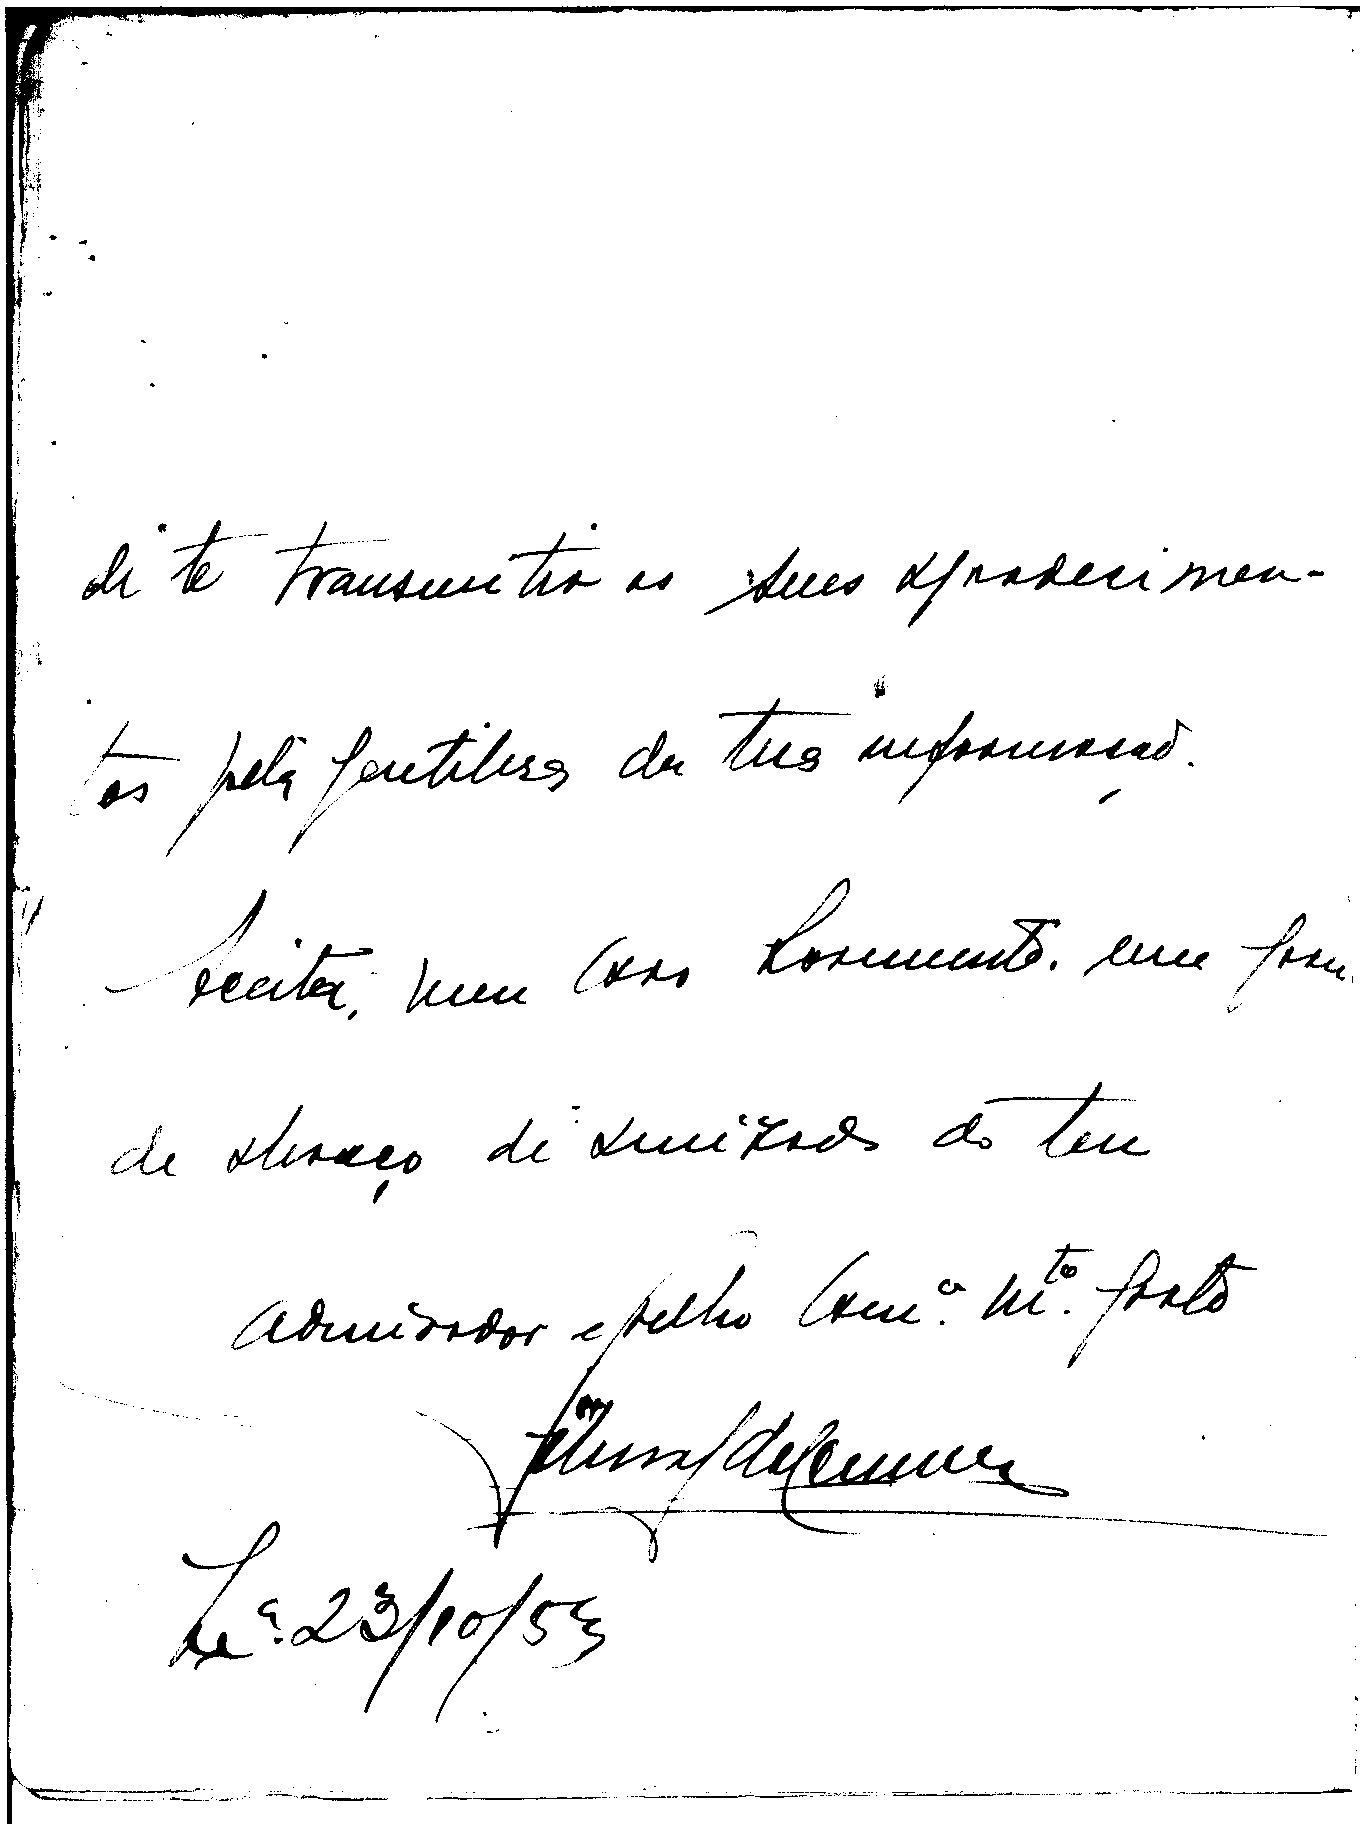 de te transmitir os seus agradecimen-
tos pela gentileza da tua informação.
Aceita, meu caro Sarmento, um gran
de abraço de amizade do teu
admirador e velho Cam.ª M.to grato
L.xa 23/10/53